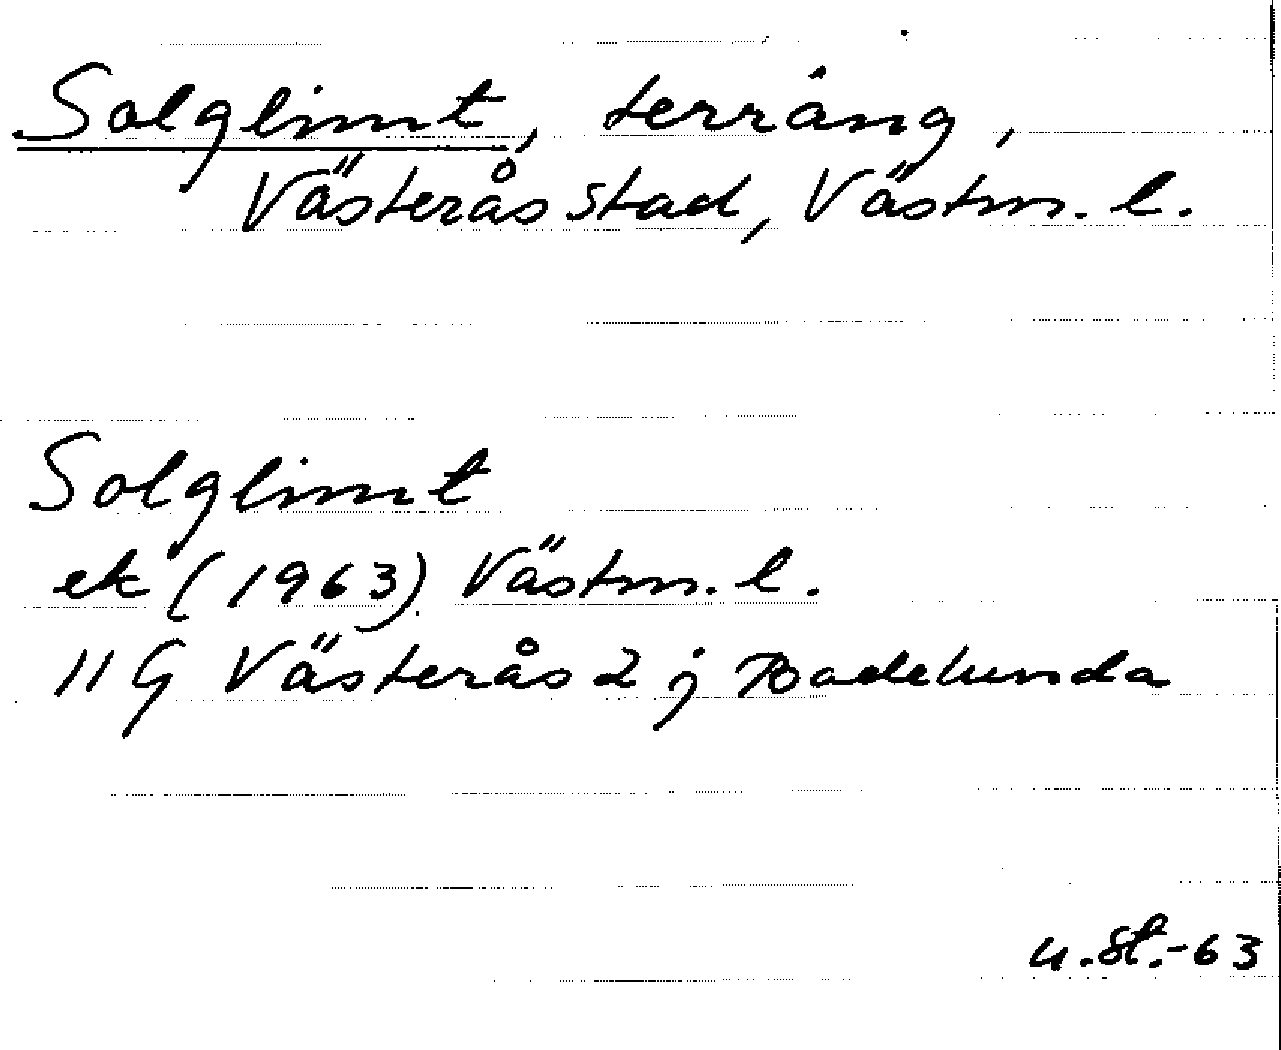 Solglimt, terräng,
Västerås stad, Västm. l.
Solglimt
ek (1963) Västm. l.
11 G Västerås 2 j Badelunda
u.st.-63